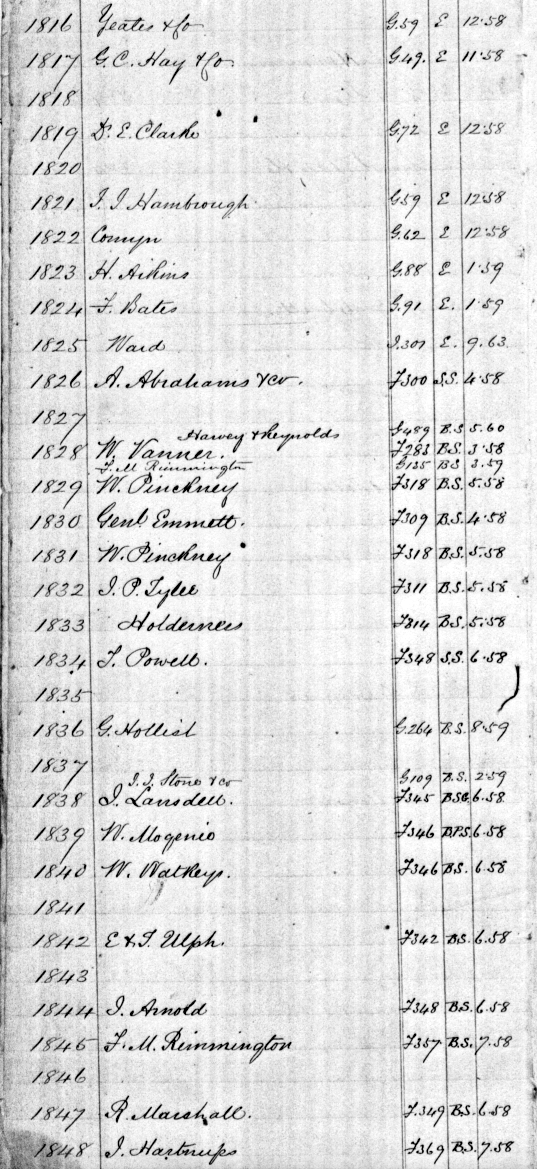 1816 Yeates & Co G.59 E 12.58
1817 G. C. Hay & Co G.49. E 11.58
1818
1819 Dr. E. Clarke G.72 E 12.58
1820
1821 J. J. Hambrough G.59 E 12.58
1822 Comyn G.62 E 12.58
1823 H. Aikins G.88 E 1.59
1824 F. Bates G.91 E. 1.59
1825 Ward J.301 E. 9.63
1826 A. Abrahams & Co. F300 S.S. 4.58
1827
Harvey & Reynolds G489 B.S 5.60
1828 W. Vanner. F283 B.S. 3.58
F. M Rimmington G135 B.S 3.59
1829 W. Pinckney F318 B.S. 5.58
1830 Genl Emmett. F309 B.S. 4.58
1831 W. Pinckney F318 B.S. 5.58
1832 J. P. Tylee F311 B.S. 5.58
1833 Holderness F314 B.S. 5.58
1834 T. Powell. F348 S.S. 6.58
1835
1836 G. Hollist G.264 B.S. 8.59
1837
J. J. Stone & Co G109 B.S. 2.59
1838 J. Lansdell. F345 BSC 6.58
1839 W. Mogenio F346 D.P.S. 6.58
1840 W. Watkeys. F346 B.S. 6.58
1841
1842 E & T. Ulph. F342 B.S. 6.58
1843
1844 J. Arnold F348 B.S. 6.58
1845 F. M. Rimmington F357 B.S. 7.58
1846
1847 R. Marshall. F.349 B.S. 6.58
1848 J. Hartnups F369 B.S. 7.58